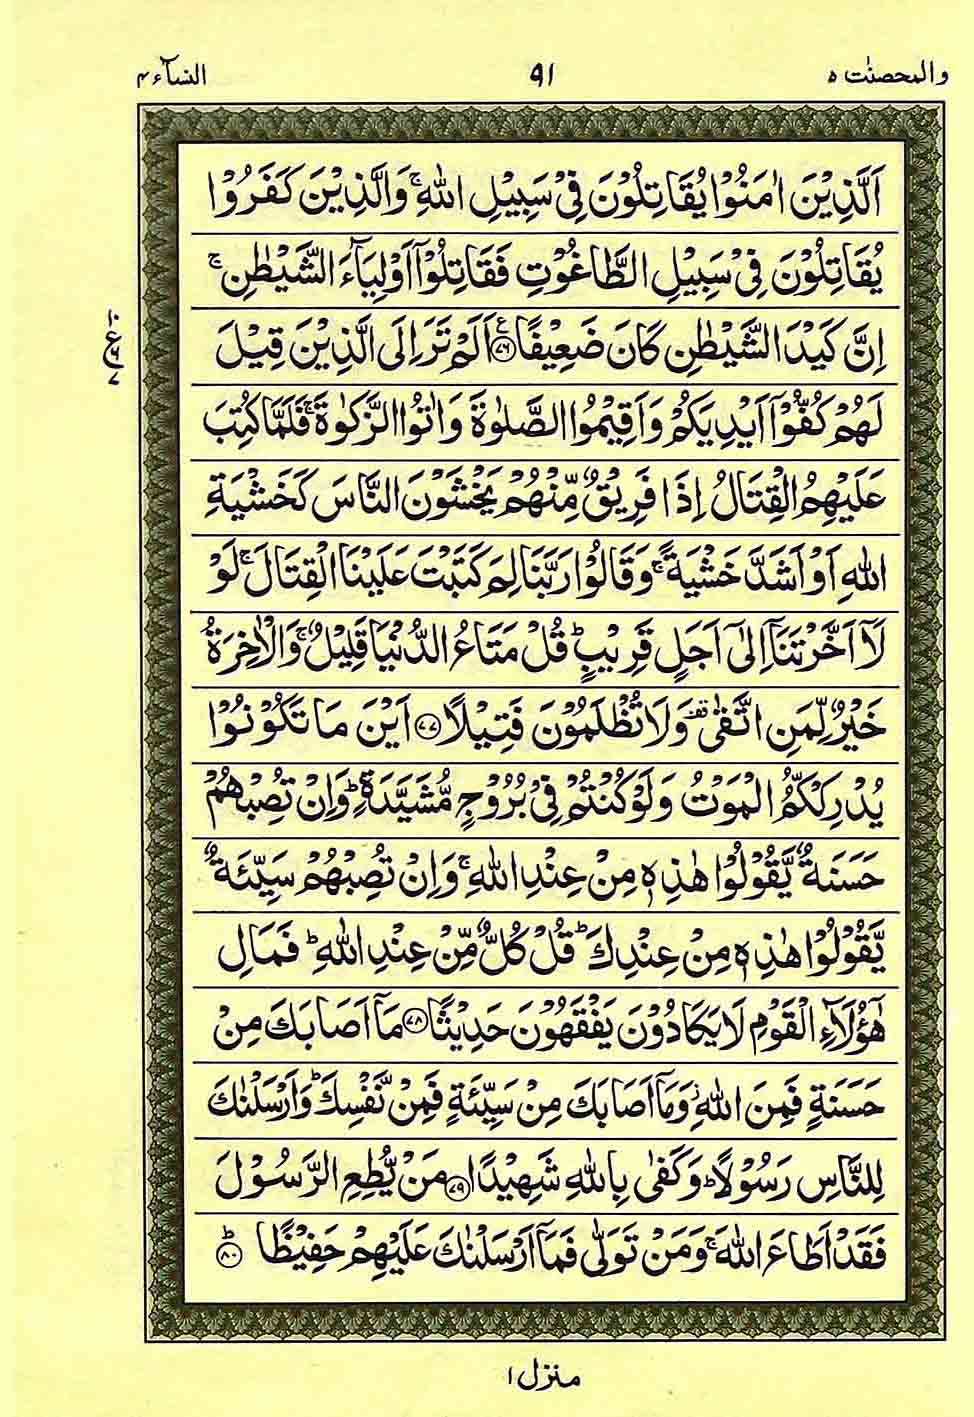 والمحصنٰت ۵
۹۱
النسآء ۴
اَلَّذِیْنَ اٰمَنُوْا یُقَاتِلُوْنَ فِیْ سَبِیْلِ اللّٰهِ ۚ وَالَّذِیْنَ كَفَرُوْا
یُقَاتِلُوْنَ فِیْ سَبِیْلِ الطَّاغُوْتِ فَقَاتِلُوْۤا اَوْلِیَآءَ الشَّیْطٰنِ ۚ
اِنَّ كَیْدَ الشَّیْطٰنِ كَانَ ضَعِیْفًا ﴿۷۶﴾ ع اَلَمْ تَرَ اِلَی الَّذِیْنَ قِیْلَ
لَهُمْ كُفُّوْۤا اَیْدِیَكُمْ وَاَقِیْمُوا الصَّلٰوةَ وَاٰتُوا الزَّكٰوةَ ۚ فَلَمَّا كُتِبَ
عَلَیْهِمُ الْقِتَالُ اِذَا فَرِیْقٌ مِّنْهُمْ یَخْشَوْنَ النَّاسَ كَخَشْیَةِ
اللّٰهِ اَوْ اَشَدَّ خَشْیَةً ۚ وَقَالُوْا رَبَّنَا لِمَ كَتَبْتَ عَلَیْنَا الْقِتَالَ ۚ لَوْ
لَاۤ اَخَّرْتَنَاۤ اِلٰۤی اَجَلٍ قَرِیْبٍ ؕ قُلْ مَتَاعُ الدُّنْیَا قَلِیْلٌ ۚ وَالْاٰخِرَةُ
خَیْرٌ لِّمَنِ اتَّقٰی ۫ وَلَا تُظْلَمُوْنَ فَتِیْلًا ﴿۷۷﴾ اَیْنَ مَا تَكُوْنُوْا
یُدْرِكْكُّمُ الْمَوْتُ وَلَوْ كُنْتُمْ فِیْ بُرُوْجٍ مُّشَیَّدَةٍ ؕ وَاِنْ تُصِبْهُمْ
حَسَنَةٌ یَّقُوْلُوْا هٰذِهٖ مِنْ عِنْدِ اللّٰهِ ۚ وَاِنْ تُصِبْهُمْ سَیِّئَةٌ
یَّقُوْلُوْا هٰذِهٖ مِنْ عِنْدِكَ ؕ قُلْ كُلٌّ مِّنْ عِنْدِ اللّٰهِ ؕ فَمَالِ
هٰۤؤُلَآءِ الْقَوْمِ لَا یَكَادُوْنَ یَفْقَهُوْنَ حَدِیْثًا ﴿۷۸﴾ مَاۤ اَصَابَكَ مِنْ
حَسَنَةٍ فَمِنَ اللّٰهِ ؗ وَمَاۤ اَصَابَكَ مِنْ سَیِّئَةٍ فَمِنْ نَّفْسِكَ ؕ وَاَرْسَلْنٰكَ
لِلنَّاسِ رَسُوْلًا ؕ وَكَفٰی بِاللّٰهِ شَهِیْدًا ﴿۷۹﴾ مَنْ یُّطِعِ الرَّسُوْلَ
فَقَدْ اَطَاعَ اللّٰهَ ۚ وَمَنْ تَوَلّٰی فَمَاۤ اَرْسَلْنٰكَ عَلَیْهِمْ حَفِیْظًا ﴿۸۰﴾ ؕ
منزل ۱